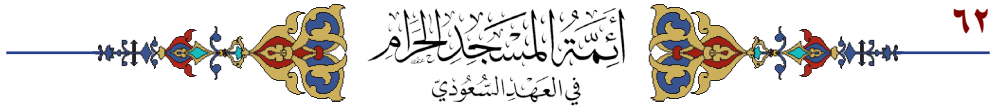 ٦٢
أَئِمَّةُ المَسْجِدِ الحَرَامِ
في العَهْدِ السُّعُودِيّ